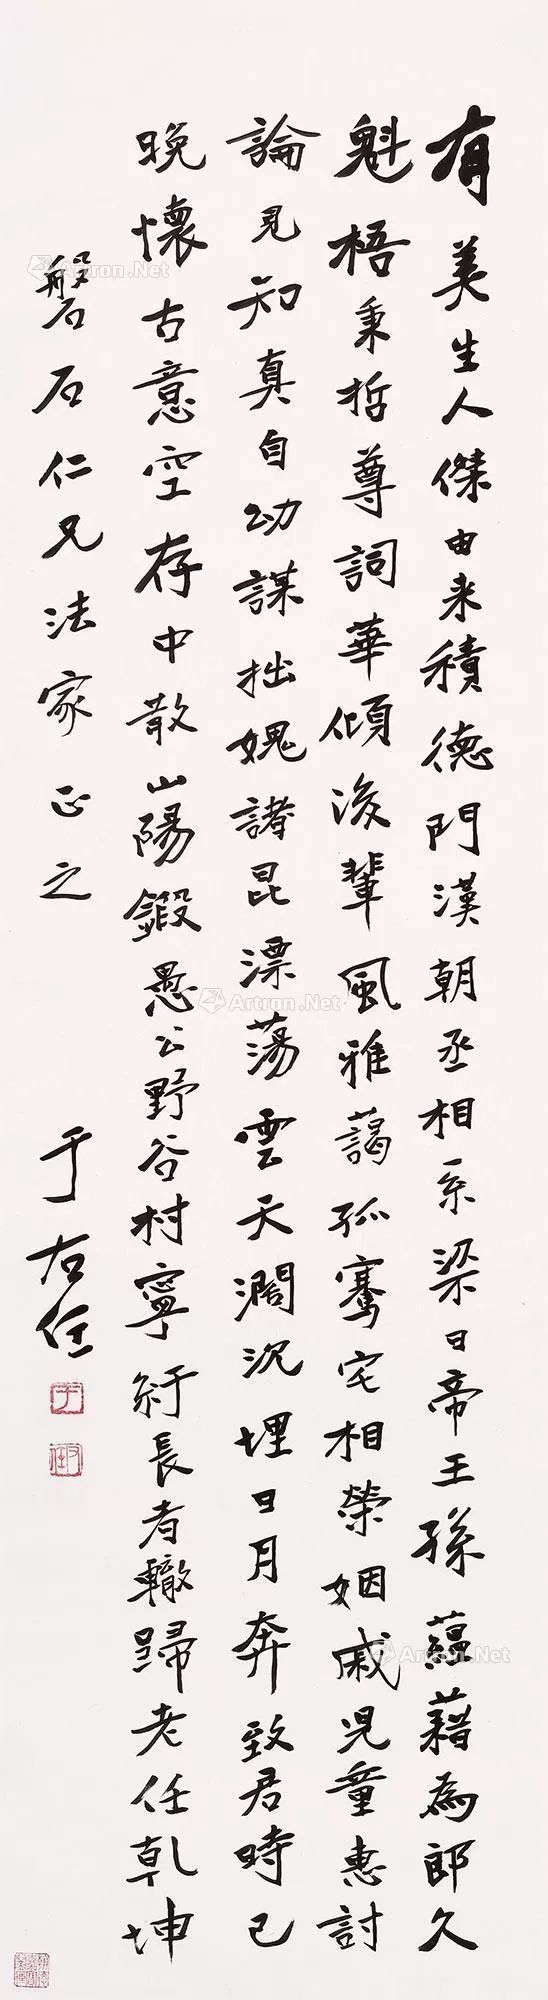 有美生人傑由来積德門漢朝丞相系梁日帝王孫蘊藉為郎久
魁梧秉哲尊詞華傾後輩風雅藹孤騫宅相榮姻戚児童惠討
論見知真自幼謀拙媿諸昆漂蕩雲天濶沉埋日月奔致君時已
晚懷古意空存中散山陽鍛愚公野谷村寧紆長者轍歸老任乾坤
磐石仁兄法家正之
于右任
Artron.Net
Artron.Net
Artron.Net
Artron.Net
Artron.Net
Artron.Net